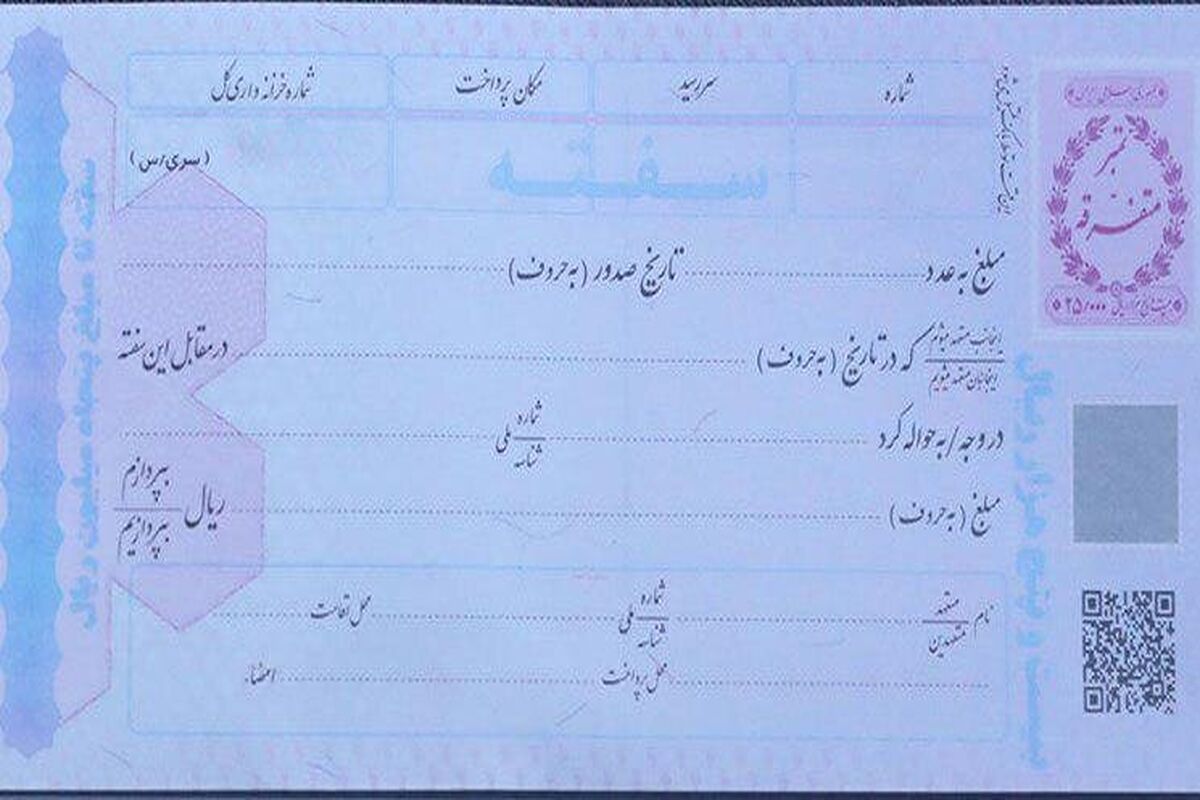 شماره
سررسید
مکان پرداخت
شماره خزانه داری کل
(سری/س)
سفته
مبلغ به عدد ........ تاریخ صدور (به حروف) ........
اینجانب متعهد میشوم
اینجانبان متعهد میشویم
که در تاریخ (به حروف) ........ در مقابل این سفته
در وجه/به حواله کرد ........ شماره ملی ........
شناسه
مبلغ (به حروف) ........ ریال
بپردازم
بپردازیم
نام متعهد ........ شماره ملی ........ محل اقامت
متعهدین
شناسه
........ محل پرداخت ........ امضاء:
جمهوری اسلامی ایران
تمبر
متفرقه
۲۵/۰۰۰
بیست و پنج هزار ریال
سفته تا مبلغ پنجاه میلیون ریال